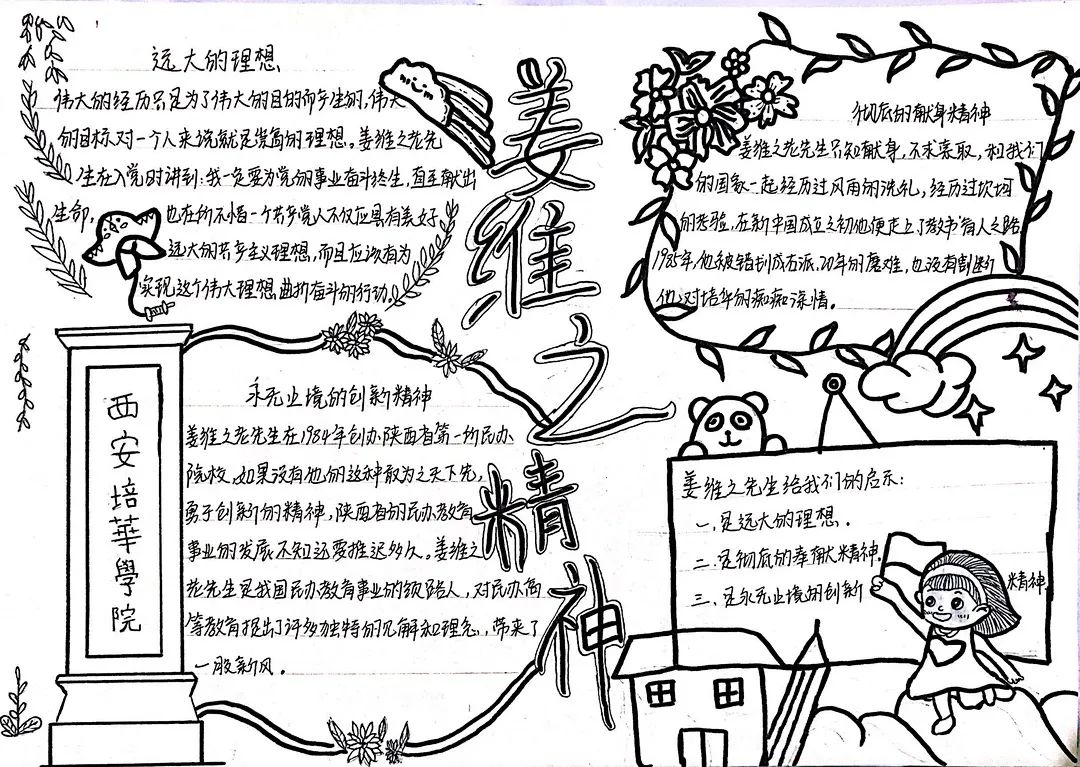 远大的理想
伟大的经历只是为了伟大的目的而产生的,伟大
的目标对一个人来说就是崇高的理想。姜维之老先
生在入党时讲到:我一定要为党的事业奋斗终生,直至献出
生命,也在所不惜一个共产党人不仅应具有美好、
远大的共产主义理想,而且应该有为
实现这个伟大理想曲折奋斗的行动。
姜维之精神
彻底的献身精神
姜维之老先生只知献身,不求索取,和我们
的国家一起经历过风雨的洗礼,经历过坎坷
的考验,在新中国成立之初他便走上了教书育人之路
他被错划成右派,20年的磨难,也没有割断
他对培华的痴痴深情。
西安培華學院
永无止境的创新精神
姜维之老先生在1984年创办陕西省第一所民办
院校,如果没有他的这种敢为之天下先,
勇于创新的精神,陕西省的民办教育
事业的发展不知还要推迟多久。姜维之
老先生是我国民办教育事业的领路人,对民办高
等教育提出了许多独特的见解和理念,带来了
一股新风。
姜维之先生给我们的启示:
一、是远大的理想.
二、是彻底的奉献精神.
三、是永无止境的创新精神